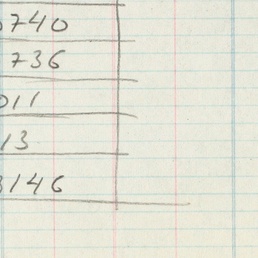 740
736
011
13
3146